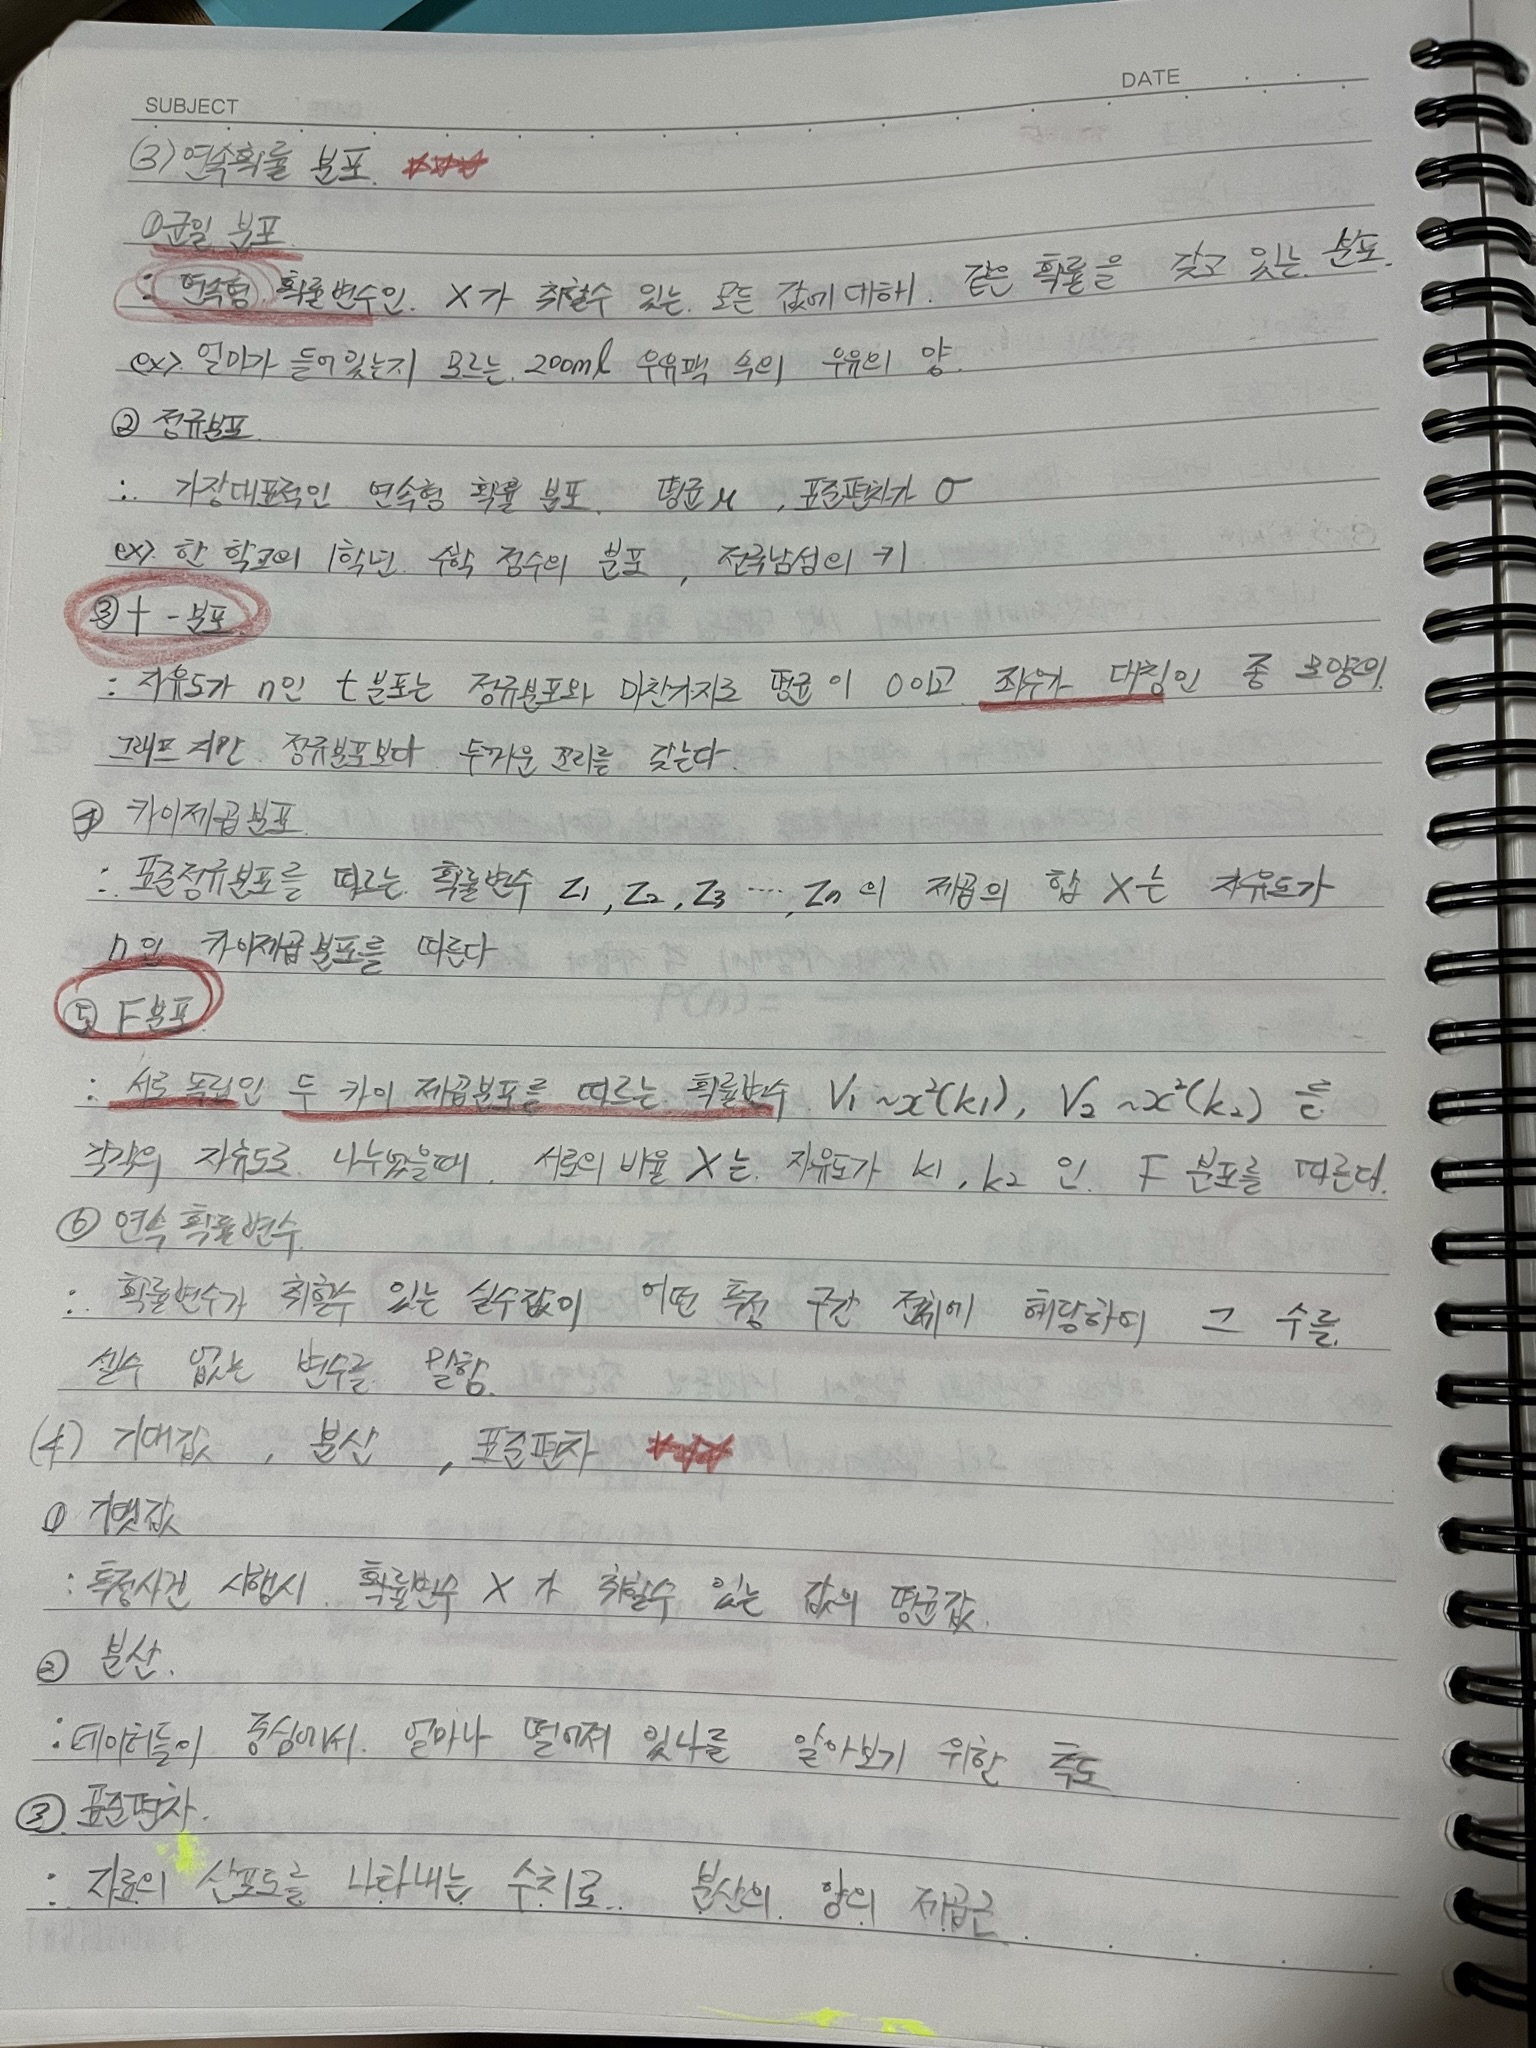 SUBJECT
DATE
(3) 연속확률 분포. ★★★
① 균일 분포
: 연속형 확률변수인. X가 취할수 있는. 모든 값에 대해. 같은 확률을 갖고 있는 분포.
ex> 얼마가 들어있는지 모르는. 200ml 우유팩 속의 우유의 양.
② 정규분포
: 가장대표적인 연속형 확률 분포. 평균 μ, 표준편차가 σ
ex> 한 학교의 1학년 수학 점수의 분포, 전국남성의 키
③ t - 분포
: 자유도가 n인 t분포는 정규분포와 마찬가지로 평균이 0이고 좌우가 대칭인 종 모양의
그래프 지만 정규분포보다 두꺼운 꼬리를 갖는다.
④ 카이제곱분포
: 표준정규분포를 따르는 확률변수 Z1, Z2, Z3 ...., Zn 의 제곱의 합 X는 자유도가
n 인 카이제곱분포를 따른다
⑤ F분포
: 서로 독립인 두 카이 제곱분포를 따르는 확률변수 V1 ~x²(k1), V2 ~x²(k2) 를
각각의 자유도로 나누었을때 서로의 비율 X는 자유도가 k1, k2 인 F 분포를 따른다.
⑥ 연속 확률변수
: 확률변수가 취할수 있는 실수값이 어떤 특정 구간 전체에 해당하여 그 수를
셀수 없는 변수를 말함.
(4) 기대값, 분산, 표준편차 ★★★
① 기댓값
: 특정사건 시행시 확률변수 X가 취할수 있는 값의 평균값.
② 분산.
: 데이터들이 중심에서 얼마나 떨어져 있나를 알아보기 위한 측도
③ 표준편차.
: 자료의 산포도를 나타내는 수치로. 분산의 양의 제곱근